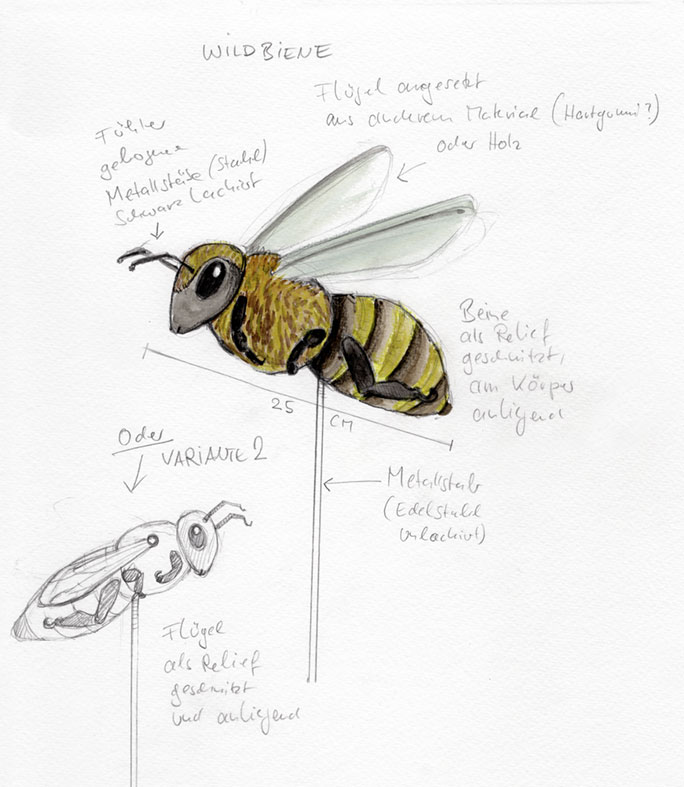 WILDBIENE
Flügel angesetzt
aus anderem Material (Hartgummi?)
oder Holz
Fühler
gebogene
Metallstäbe (Stahl)
Schwarz lackiert
Beine
als Relief
geschnitzt,
am Körper
anliegend
25 CM
Oder
VARIANTE 2
Metallstab
(Edelstahl
unlackiert)
Flügel
als Relief
geschnitzt
und anliegend